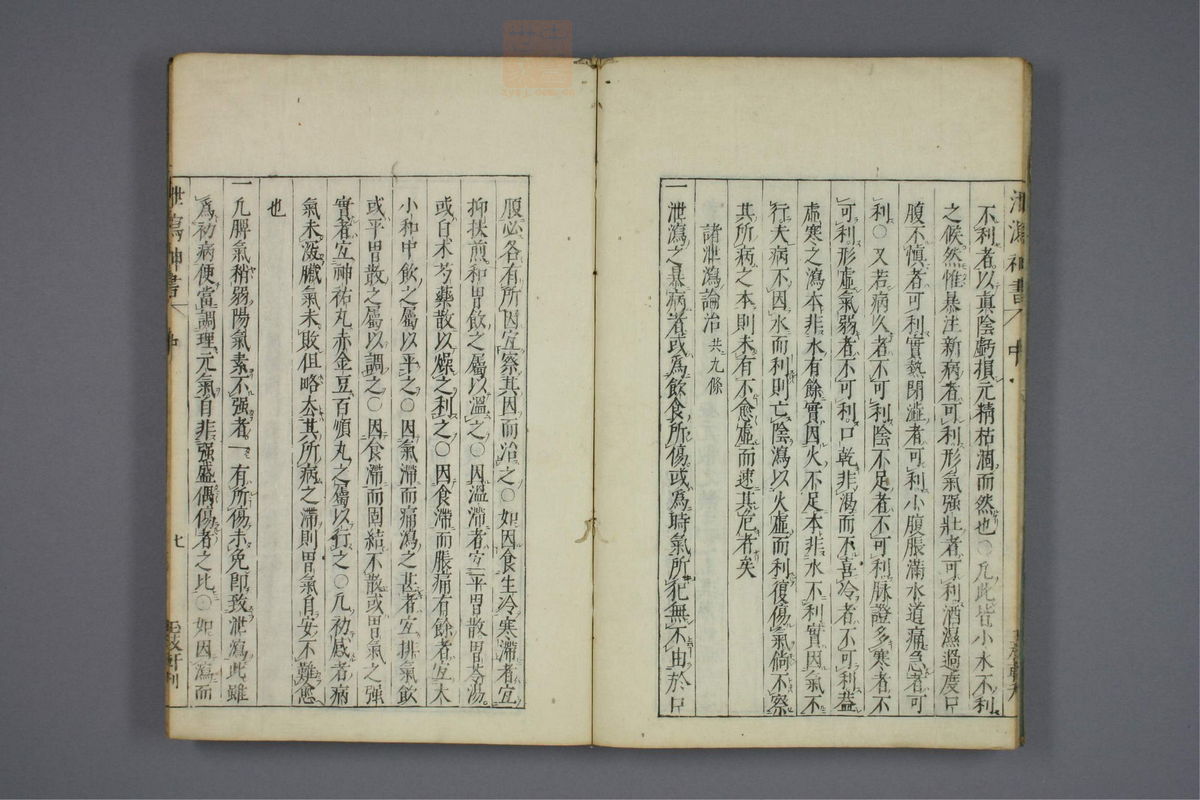 不利者以眞陰虧損元精枯涸而然也○凡此皆小水不利
之候然惟暴注新病者可利形氣强壯者可利酒濕過度口
腹不愼者可利實熱閉澁者可利小腹脹滿水道痛急者可
利○又若病久者不可利陰不足者不可利脉證多寒者不
可利形虛氣弱者不可利口乾非渴而不喜冷者不可利蓋
虛寒之瀉本非水有餘實因火不足本非水不利實因氣不
行夫病不因水而利則亡陰瀉以火虛而利復傷氣倘不察
其所病之本則未有不愈虛而速其危者矣
諸泄瀉論治 共九條
一 泄瀉之暴病者或爲飮食所傷或爲時氣所犯無不由於口
腹必各有所因宜察其因而治之○如因食生冷寒滯者宜
抑扶煎和胃飮之屬以溫之○因溫滯者宜平胃散胃苓湯
或白朮芍藥散以燥之利之○因食滯而脹痛有餘者宜大
小和中飮之屬以平之○因氣滯而痛瀉之甚者宜排氣飮
或平胃散之屬以調之○因食滯而固結不散或胃氣之强
實者宜神祐丸赤金豆百順丸之屬以行之○凡初感者病
氣未深臟氣未敗但略去其所病之滯則胃氣自安不難愈
也
一 凡脾氣稍弱陽氣素不强者一有所傷未免卽致泄瀉此雖
爲初病便當調理元氣自非强盛偶傷者之比○如因瀉而
泄瀉神書 中 七